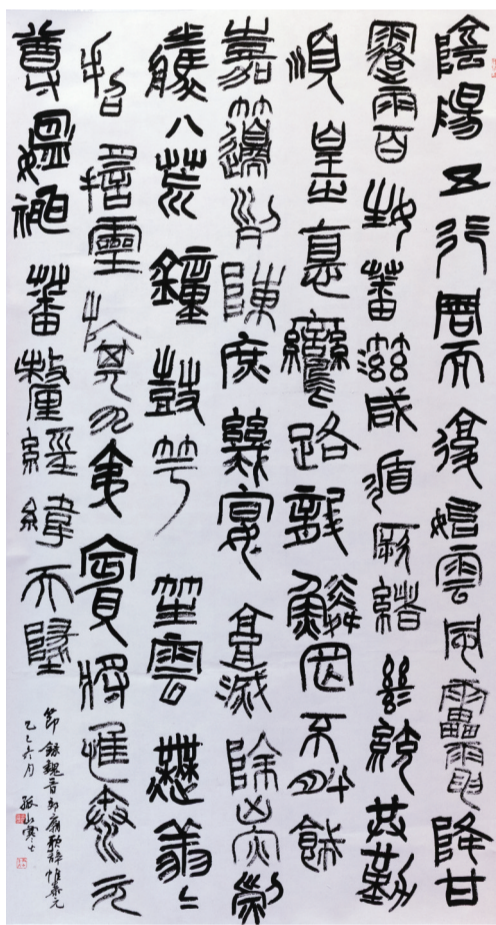 陰陽五行周而復始雲風靁電降甘
露雨百姓蕃滋咸循厥緒繼統共勤
順皇之悳鸞路龍鱗罔不肸飾
嘉籩列陳庶幾宴享滅除凶災烈
騰八荒鐘鼓竽笙雲舞翔〻
招搖靈旗九夷賓將惟泰元
尊媪神蕃釐經緯天墬
節錄魏晋郊廟歌辞惟泰元
乙巳六月 孤山寒士